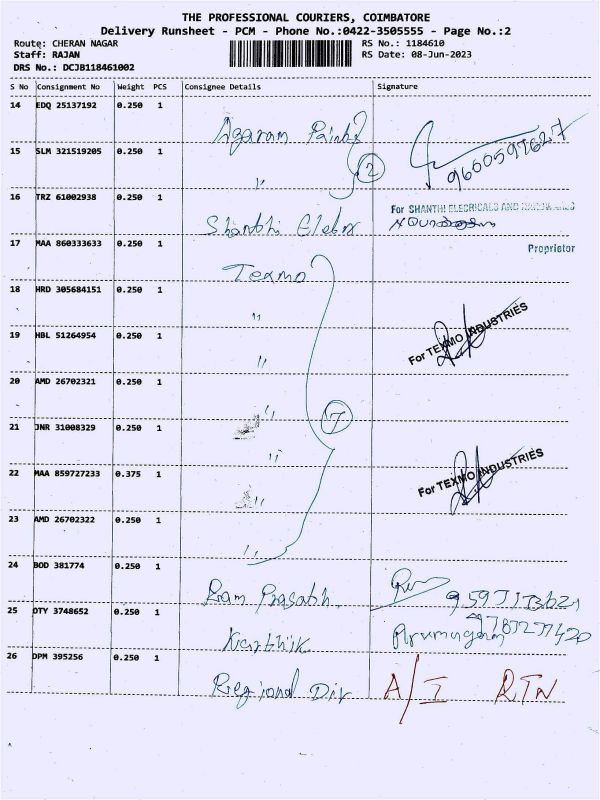 THE PROFESSIONAL COURIERS, COIMBATORE
Delivery Runsheet - PCM - Phone No.:0422-3505555 - Page No.:2
Route: CHERAN NAGAR RS No.: 1184610
Staff: RAJAN RS Date: 08-Jun-2023
DRS No.: DCJB118461002
S No Consignment No Weight PCS Consignee Details Signature
14 EDQ 25137192 0.250 1
Agaram Paints
15 SLM 321519205 0.250 1
" 2 9600597627
16 TRZ 61002938 0.250 1
For SHANTHI ELECRICALS AND HARDWARES
Shanthi Elebx
17 MAA 860333633 0.250 1
Proprietor
Texmo
18 HRD 305684151 0.250 1
"
19 HBL 51264954 0.250 1
For TEXMO INDUSTRIES
"
20 AMD 26702321 0.250 1
" 7
21 JNR 31008329 0.250 1
"
22 MAA 859727233 0.375 1
For TEXMO INDUSTRIES
"
23 AMD 26702322 0.250 1
"
24 BOD 381774 0.250 1
Ram Prasath
25 OTY 3748652 0.250 1
Karthik Arumugam
26 DPM 395256 0.250 1
Regional Dir A/I RTN